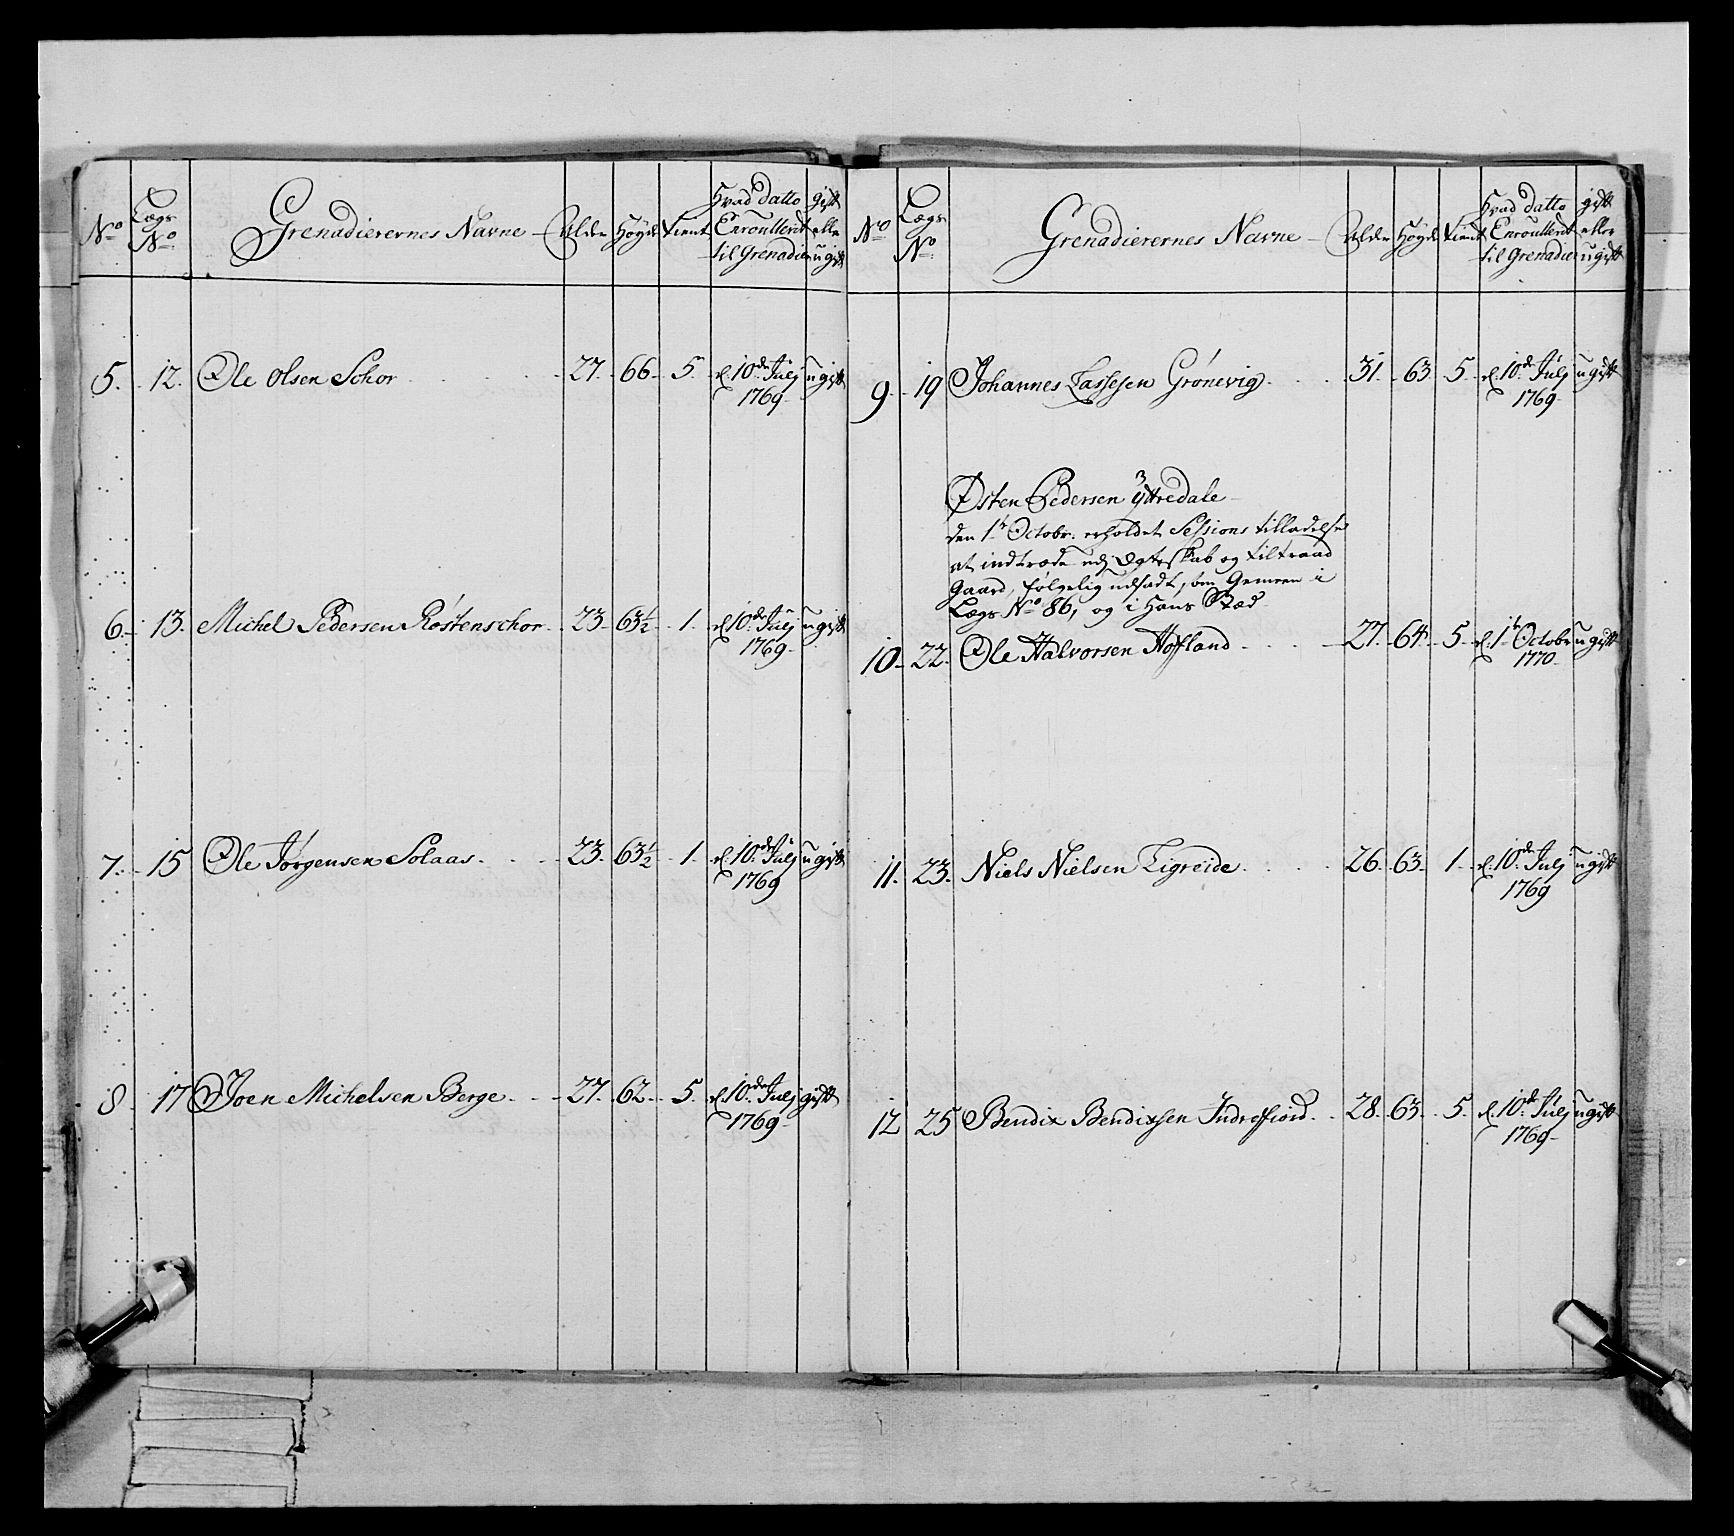 No
Lægs No
Grenadierernes Navne
Alder
Høyde
tient
Hvad Datto Enroullerit til Grenadier
gift eller ugift
5. 12. Ole Olsen Schor 27. 66. 5. d. 10de Julj ugift
1769
6. 13. Michel Pedersen Røstenschor 23. 63½ 1. d. 10de Julj ugift
1769
7. 15 Ole Jørgensen Solaas 23. 63½ 1. d. 10de Julj ugift
1769
8 17 Joen Michelsen Berge 27. 62. 5. d. 10de Julj gift
1769
No
Lægs No
Grenadierernes Navne
Alder
Høyde
tient
Hvad Datto Enroullerit til Grenadier
gift eller ugift
9. 19 Johannes Lassesen Grønevig 31. 63 5. d. 10de Julj ugift
1769
Østen Pedersen Yttredale
den 1te Octobr: erholdet Sessions tilladelse
at indtræde udj Ægteskab og tiltraad
Gaard, følgelig udsadt, som Gemeen i
Lægs No 86, og i Hans Stæd
10. 22. Ole Halvorsen Hofland 27. 64. 5. d. 1te Octobr ugift
1770
11. 23. Niels Nielsen Ligreide 26. 63. 1. d. 10de Julj ugift
1769
12 25 Bendix Bendixsen Indrefiord 28. 63. 5. d. 10de Julj ugift
1769